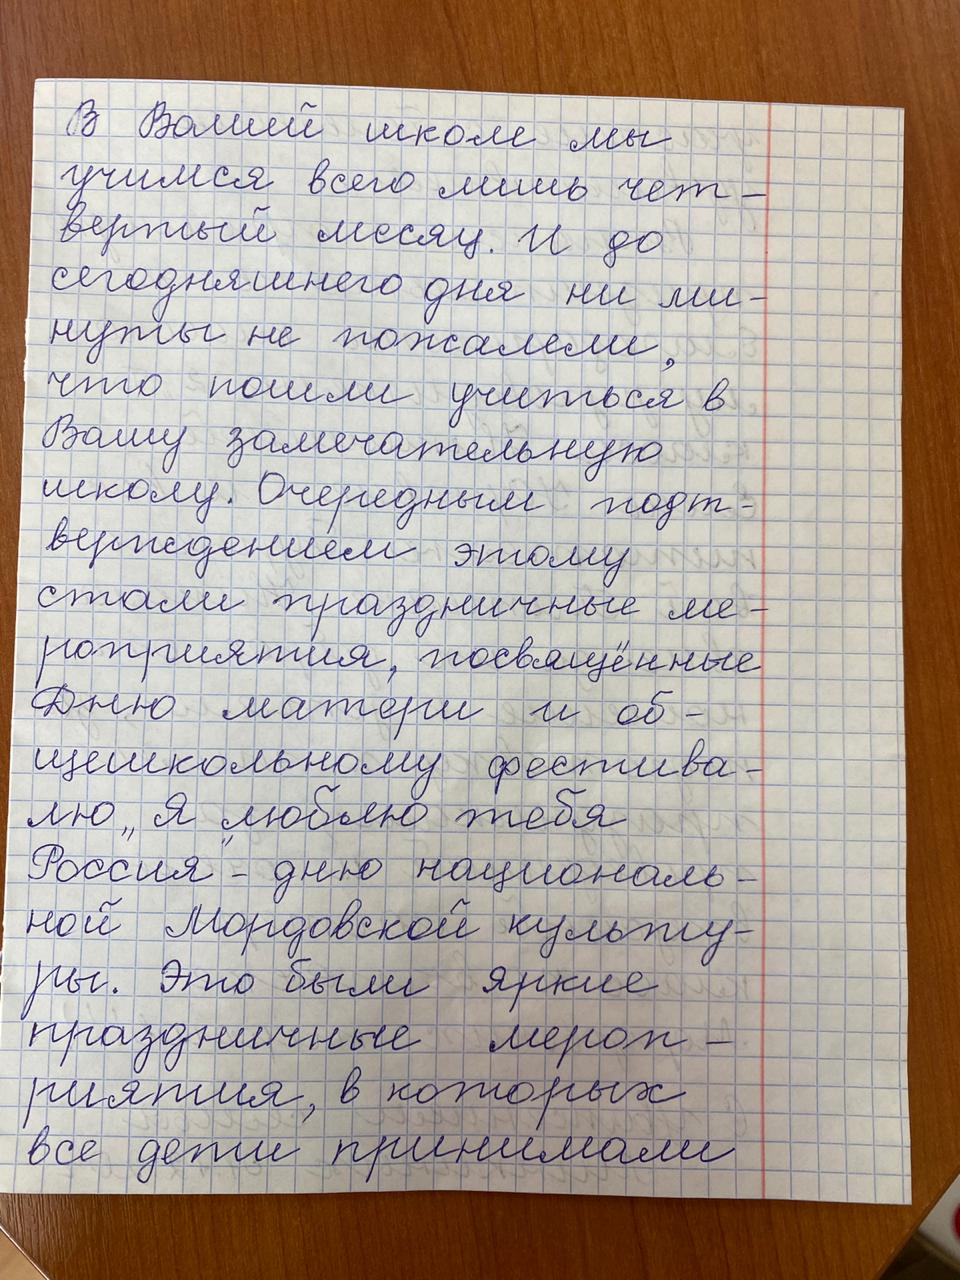 В Вашей школе мы
учимся всего лишь чет-
вертый месяц. И до
сегодняшнего дня ни ми-
нуты не пожалели,
что пошли учиться в
Вашу замечательную
школу. Очередным подт-
верждением этому
стали праздничные ме-
роприятия, посвящённые
Дню матери и об-
щешкольному фестива-
лю „Я люблю тебя
Россия" - дню националь-
ной Мордовской культу-
ры. Это были яркие
праздничные мероп-
риятия, в которых
все дети принимали